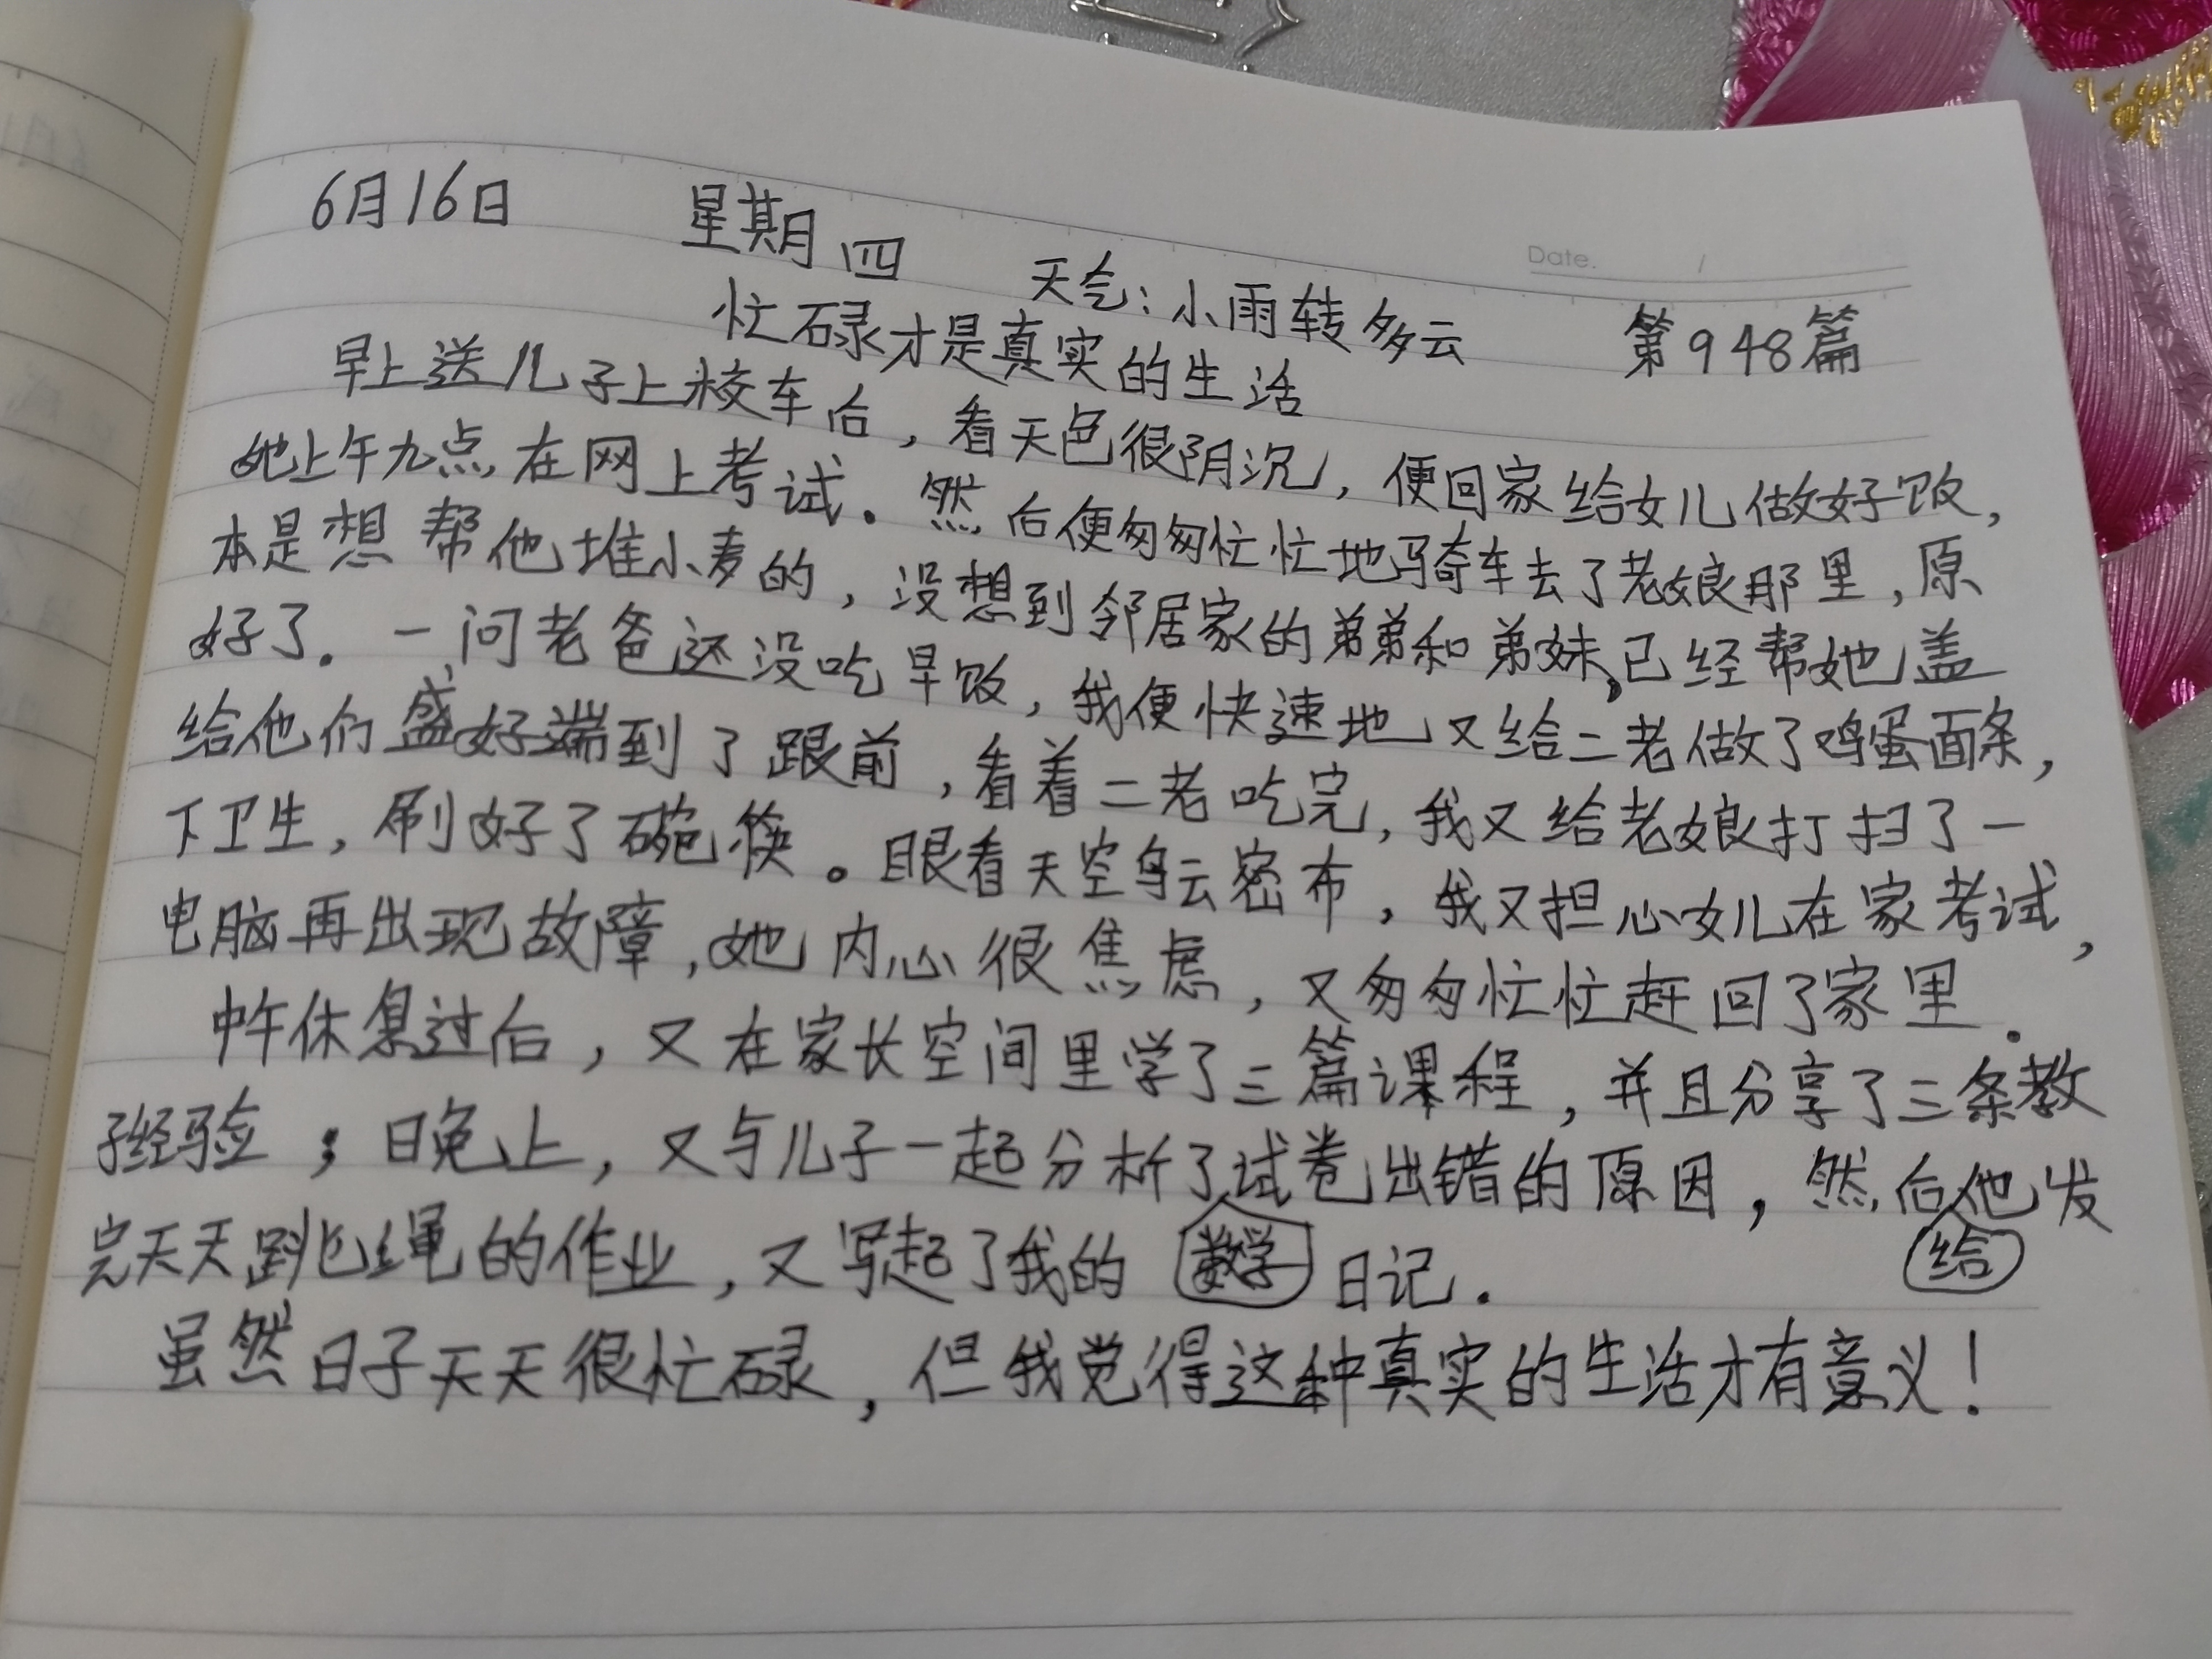 Date.
6月16日 星期四 天气:小雨转多云 第948篇
忙碌才是真实的生活
早上送儿子上校车后,看天色很阴沉,便回家给女儿做好饭,
她上午九点在网上考试。然后便匆匆忙忙地骑车去了老娘那里,原
本是想帮他堆小麦的,没想到邻居家的弟弟和弟妹,已经帮她盖
好了。一问老爸还没吃早饭,我便快速地又给二老做了鸡蛋面条,
给他们盛好端到了跟前,看着二老吃完,我又给老娘打扫了一
下卫生,刷好了碗筷。眼看天空乌云密布,我又担心女儿在家考试,
电脑再出现故障,她内心很焦虑,又匆匆忙忙赶回了家里.
中午休息过后,又在家长空间里学了三篇课程,并且分享了三条教
子经验;晚上,又与儿子一起分析了数学试卷出错的原因,然后给他发
完天天跳绳的作业,又写起了我的日记.
虽然日子天天很忙碌,但我觉得这种真实的生活才有意义!